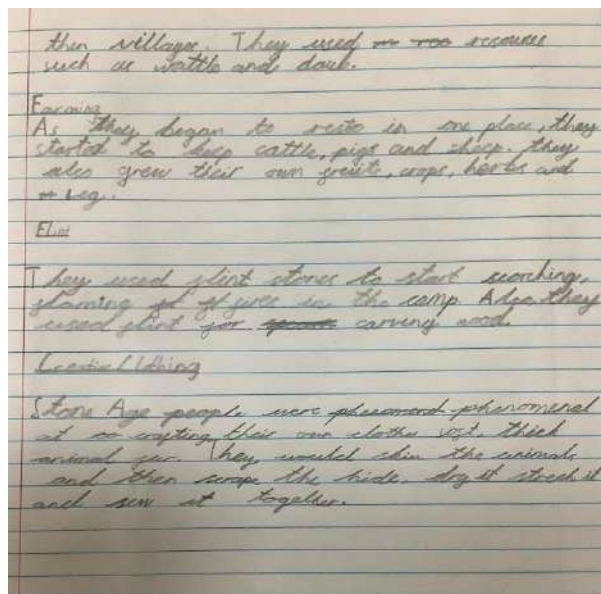 then villages. They used resources
such as wattle and daub.
Farming
As they began to rest in one place, they
started to keep cattle, pigs and sheep. they
also grew their own fruits, crops, herbs and
veg.
Flint
They used flint stones to start scorching,
flaming fires in the camp. Also, they
used flint for carving wood.
Stone Age people were phenomenal
at crafting their own clothes thick
animal fur. They would skin the animals
and then scrape the hide, dry it streach it
and sew it together.